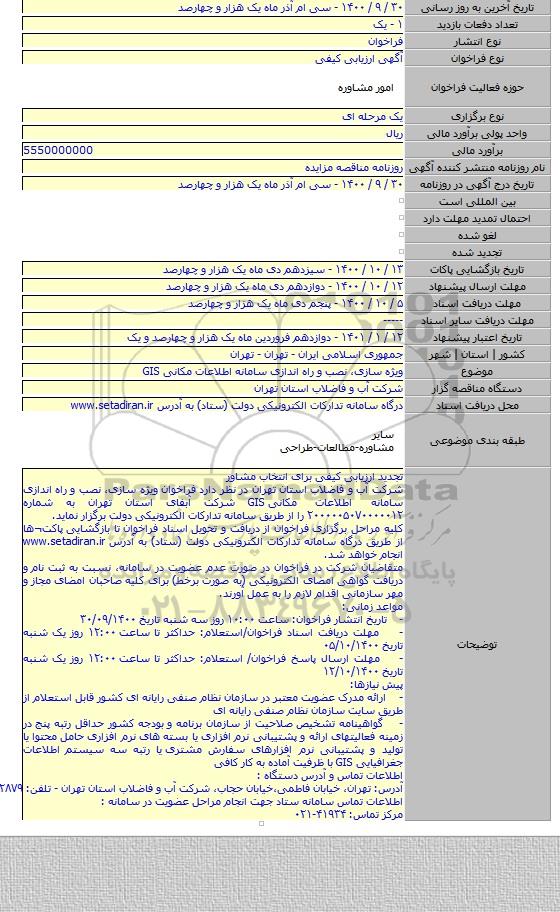 تاریخ آخرین به روز رسانی ۳۰ / ۹ / ۱۴۰۰ - سی ام آذر ماه یک هزار و چهارصد
تعداد دفعات بازدید ۱ - یک
نوع انتشار فراخوان
نوع فراخوان آگهی ارزیابی کیفی
حوزه فعالیت فراخوان امور مشاوره
نوع برگزاری یک مرحله ای
واحد پولی برآورد مالی ریال
برآورد مالی 5550000000
نام روزنامه منتشر کننده آگهی روزنامه مناقصه مزایده
تاریخ درج آگهی در روزنامه ۳۰ / ۹ / ۱۴۰۰ - سی ام آذر ماه یک هزار و چهارصد
بین المللی است
احتمال تمدید مهلت دارد
لغو شده
تجدید شده
تاریخ بازگشایی پاکات ۱۳ / ۱۰ / ۱۴۰۰ - سیزدهم دی ماه یک هزار و چهارصد
مهلت ارسال پیشنهاد ۱۲ / ۱۰ / ۱۴۰۰ - دوازدهم دی ماه یک هزار و چهارصد
مهلت دریافت اسناد ۵ / ۱۰ / ۱۴۰۰ - پنجم دی ماه یک هزار و چهارصد
مهلت دریافت سایر اسناد -----
تاریخ اعتبار پیشنهاد ۱۲ / ۱ / ۱۴۰۱ - دوازدهم فروردین ماه یک هزار و چهارصد و یک
کشور | استان | شهر جمهوری اسلامی ایران - تهران - تهران
موضوع ویژه سازی، نصب و راه اندازی سامانه اطلاعات مکانی GIS
دستگاه مناقصه گزار شرکت آب و فاضلاب استان تهران
محل دریافت اسناد درگاه سامانه تدارکات الکترونیکی دولت (ستاد) به آدرس www.setadiran.ir
طبقه بندی موضوعی سایر
مشاوره-مطالعات-طراحی
توضیحات
تجدید ارزیابی کیفی برای انتخاب مشاور
شرکت آب و فاضلاب استان تهران در نظر دارد فراخوان ویژه سازی، نصب و راه اندازی
سامانه اطلاعات مکانی GIS شرکت آبفای استان تهران به شماره
۲۰۰۰۰۰۵۰۷۰۰۰۰۰۱۲ را از طریق سامانه تدارکات الکترونیکی دولت برگزار نماید.
کلیه مراحل برگزاری فراخوان از دریافت و تحویل اسناد فراخوان تا بازگشایی پاکت¬ها
از طریق درگاه سامانه تدارکات الکترونیکی دولت (ستاد) به آدرس www.setadiran.ir
انجام خواهد شد.
متقاضیان شرکت در فراخوان در صورت عدم عضویت در سامانه، نسبت به ثبت نام و
دریافت گواهی امضای الکترونیکی (به صورت برخط) برای کلیه صاحبان امضای مجاز و
مهر سازمانی اقدام لازم را به عمل آورند.
مواعد زمانی:
تاریخ انتشار فراخوان: ساعت ۱۰:۰۰ روز سه شنبه تاریخ ۳۰/۰۹/۱۴۰۰
- مهلت دریافت اسناد فراخوان/استعلام: حداکثر تا ساعت ۱۲:۰۰ روز یک شنبه
تاریخ ۰۵/۱۰/۱۴۰۰
- مهلت ارسال پاسخ فراخوان/ استعلام: حداکثر تا ساعت ۱۲:۰۰ روز یک شنبه
تاریخ ۱۲/۱۰/۱۴۰۰
پیش نیازها:
- ارائه مدرک عضویت معتبر در سازمان نظام صنفی رایانه ای کشور قابل استعلام از
طریق سایت سازمان نظام صنفی رایانه ای
- گواهینامه تشخیص صلاحیت از سازمان برنامه و بودجه کشور حداقل رتبه پنج در
زمینه فعالیتهای ارائه و پشتیبانی نرم افزاری یا بسته های نرم افزاری حامل محتوا یا
تولید و پشتیبانی نرم افزارهای سفارش مشتری یا رتبه سه سیستم اطلاعات
جغرافیایی GIS با ظرفیت آماده به کار کافی
اطلاعات تماس و آدرس دستگاه :
آدرس: تهران، خیابان فاطمی،خیابان حجاب، شرکت آب و فاضلاب استان تهران - تلفن: ۲۸۷۹
اطلاعات تماس سامانه ستاد جهت انجام مراحل عضویت در سامانه :
مرکز تماس: ۴۱۹۳۴-۰۲۱